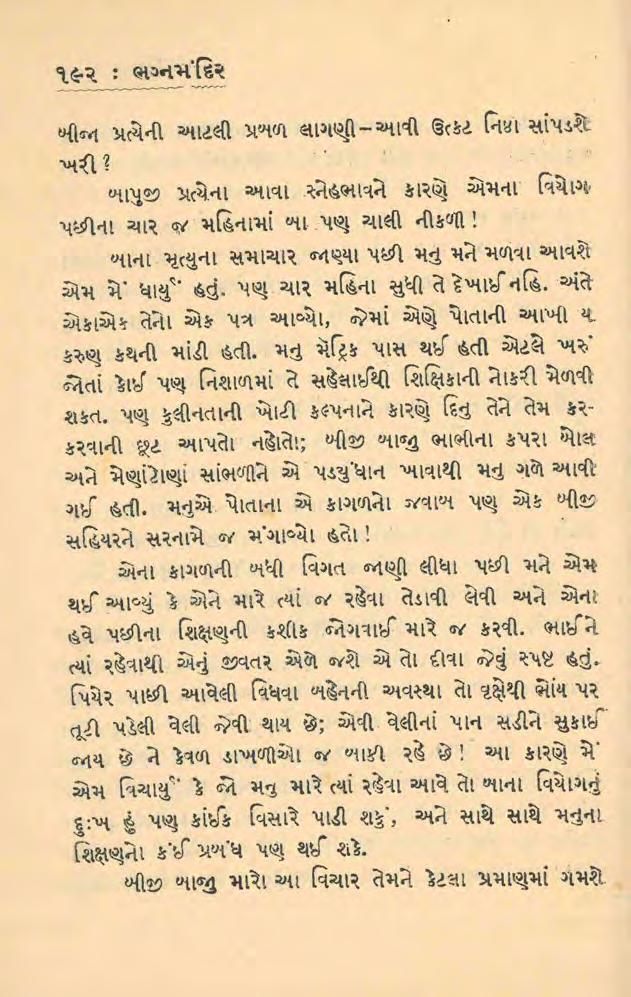 ૧૯૨ : ભગ્નમંદિર
બીજા પ્રત્યેની આટલી પ્રબળ લાગણી–આવી ઉત્કટ નિષ્ઠા સાંપડશે
ખરી?
બાપુજી પ્રત્યેના આવા સ્નેહભાવને કારણે એમના વિયોગ
પછીના ચાર જ મહિનામાં બા પણ ચાલી નીકળી!
બાના મૃત્યુના સમાચાર જાણ્યા પછી મનુ મને મળવા આવશે
એમ મેં ધાર્યું હતું. પણ ચાર મહિના સુધી તે દેખાઈ નહિ. અંતે
એકાએક તેનો એક પત્ર આવ્યો, જેમાં એણે પોતાની આખી ય
કરુણ કથની માંડી હતી. મનુ મૅટ્રિક પાસ થઈ હતી એટલે ખરું
જોતાં કોઈ પણ નિશાળમાં તે સહેલાઈથી શિક્ષિકાની નોકરી મેળવી
શકત. પણ કુલીનતાની ખોટી કલ્પનાને કારણે દિનુ તેને તેમ કર-
કરવાની છૂટ આપતો નહોતો; બીજી બાજુ ભાભીના કપરા બોલ
અને મેણાંટોણાં સાંભળીને એ પડ્યું ધાન ખાવાથી મનુ ગળે આવી
ગઈ હતી. મનુએ પોતાના એ કાગળનો જવાબ પણ એક બીજી
સહિયરને સરનામે જ મંગાવ્યો હતો!
એના કાગળની બધી વિગત જાણી લીધા પછી મને એમ
થઈ આવ્યું કે એને મારે ત્યાં જ રહેવા તેડાવી લેવી અને એના
હવે પછીના શિક્ષણની કશીક જોગવાઈ મારે જ કરવી. ભાઈને
ત્યાં રહેવાથી એનું જીવતર એળે જશે એ તો દીવા જેવું સ્પષ્ટ હતું.
પિયેર પાછી આવેલી વિધવા બહેનની અવસ્થા તો વૃક્ષેથી ભોંય પર
તૂટી પડેલી વેલી જેવી થાય છે; એવી વેલીનાં પાન સડીને સુકાઈ
જાય છે ને કેવળ ડાખળીઓ જ બાકી રહે છે! આ કારણે મેં
એમ વિચાર્યું કે જો મનુ મારે ત્યાં રહેવા આવે તો બાના વિયોગનું
દુઃખ હું પણ કાંઈક વિસારે પાડી શકું, અને સાથે સાથે મનુના
શિક્ષણનો કંઈ પ્રબંધ પણ થઈ શકે.
બીજી બાજુ મારો આ વિચાર તેમને કેટલા પ્રમાણમાં ગમશે